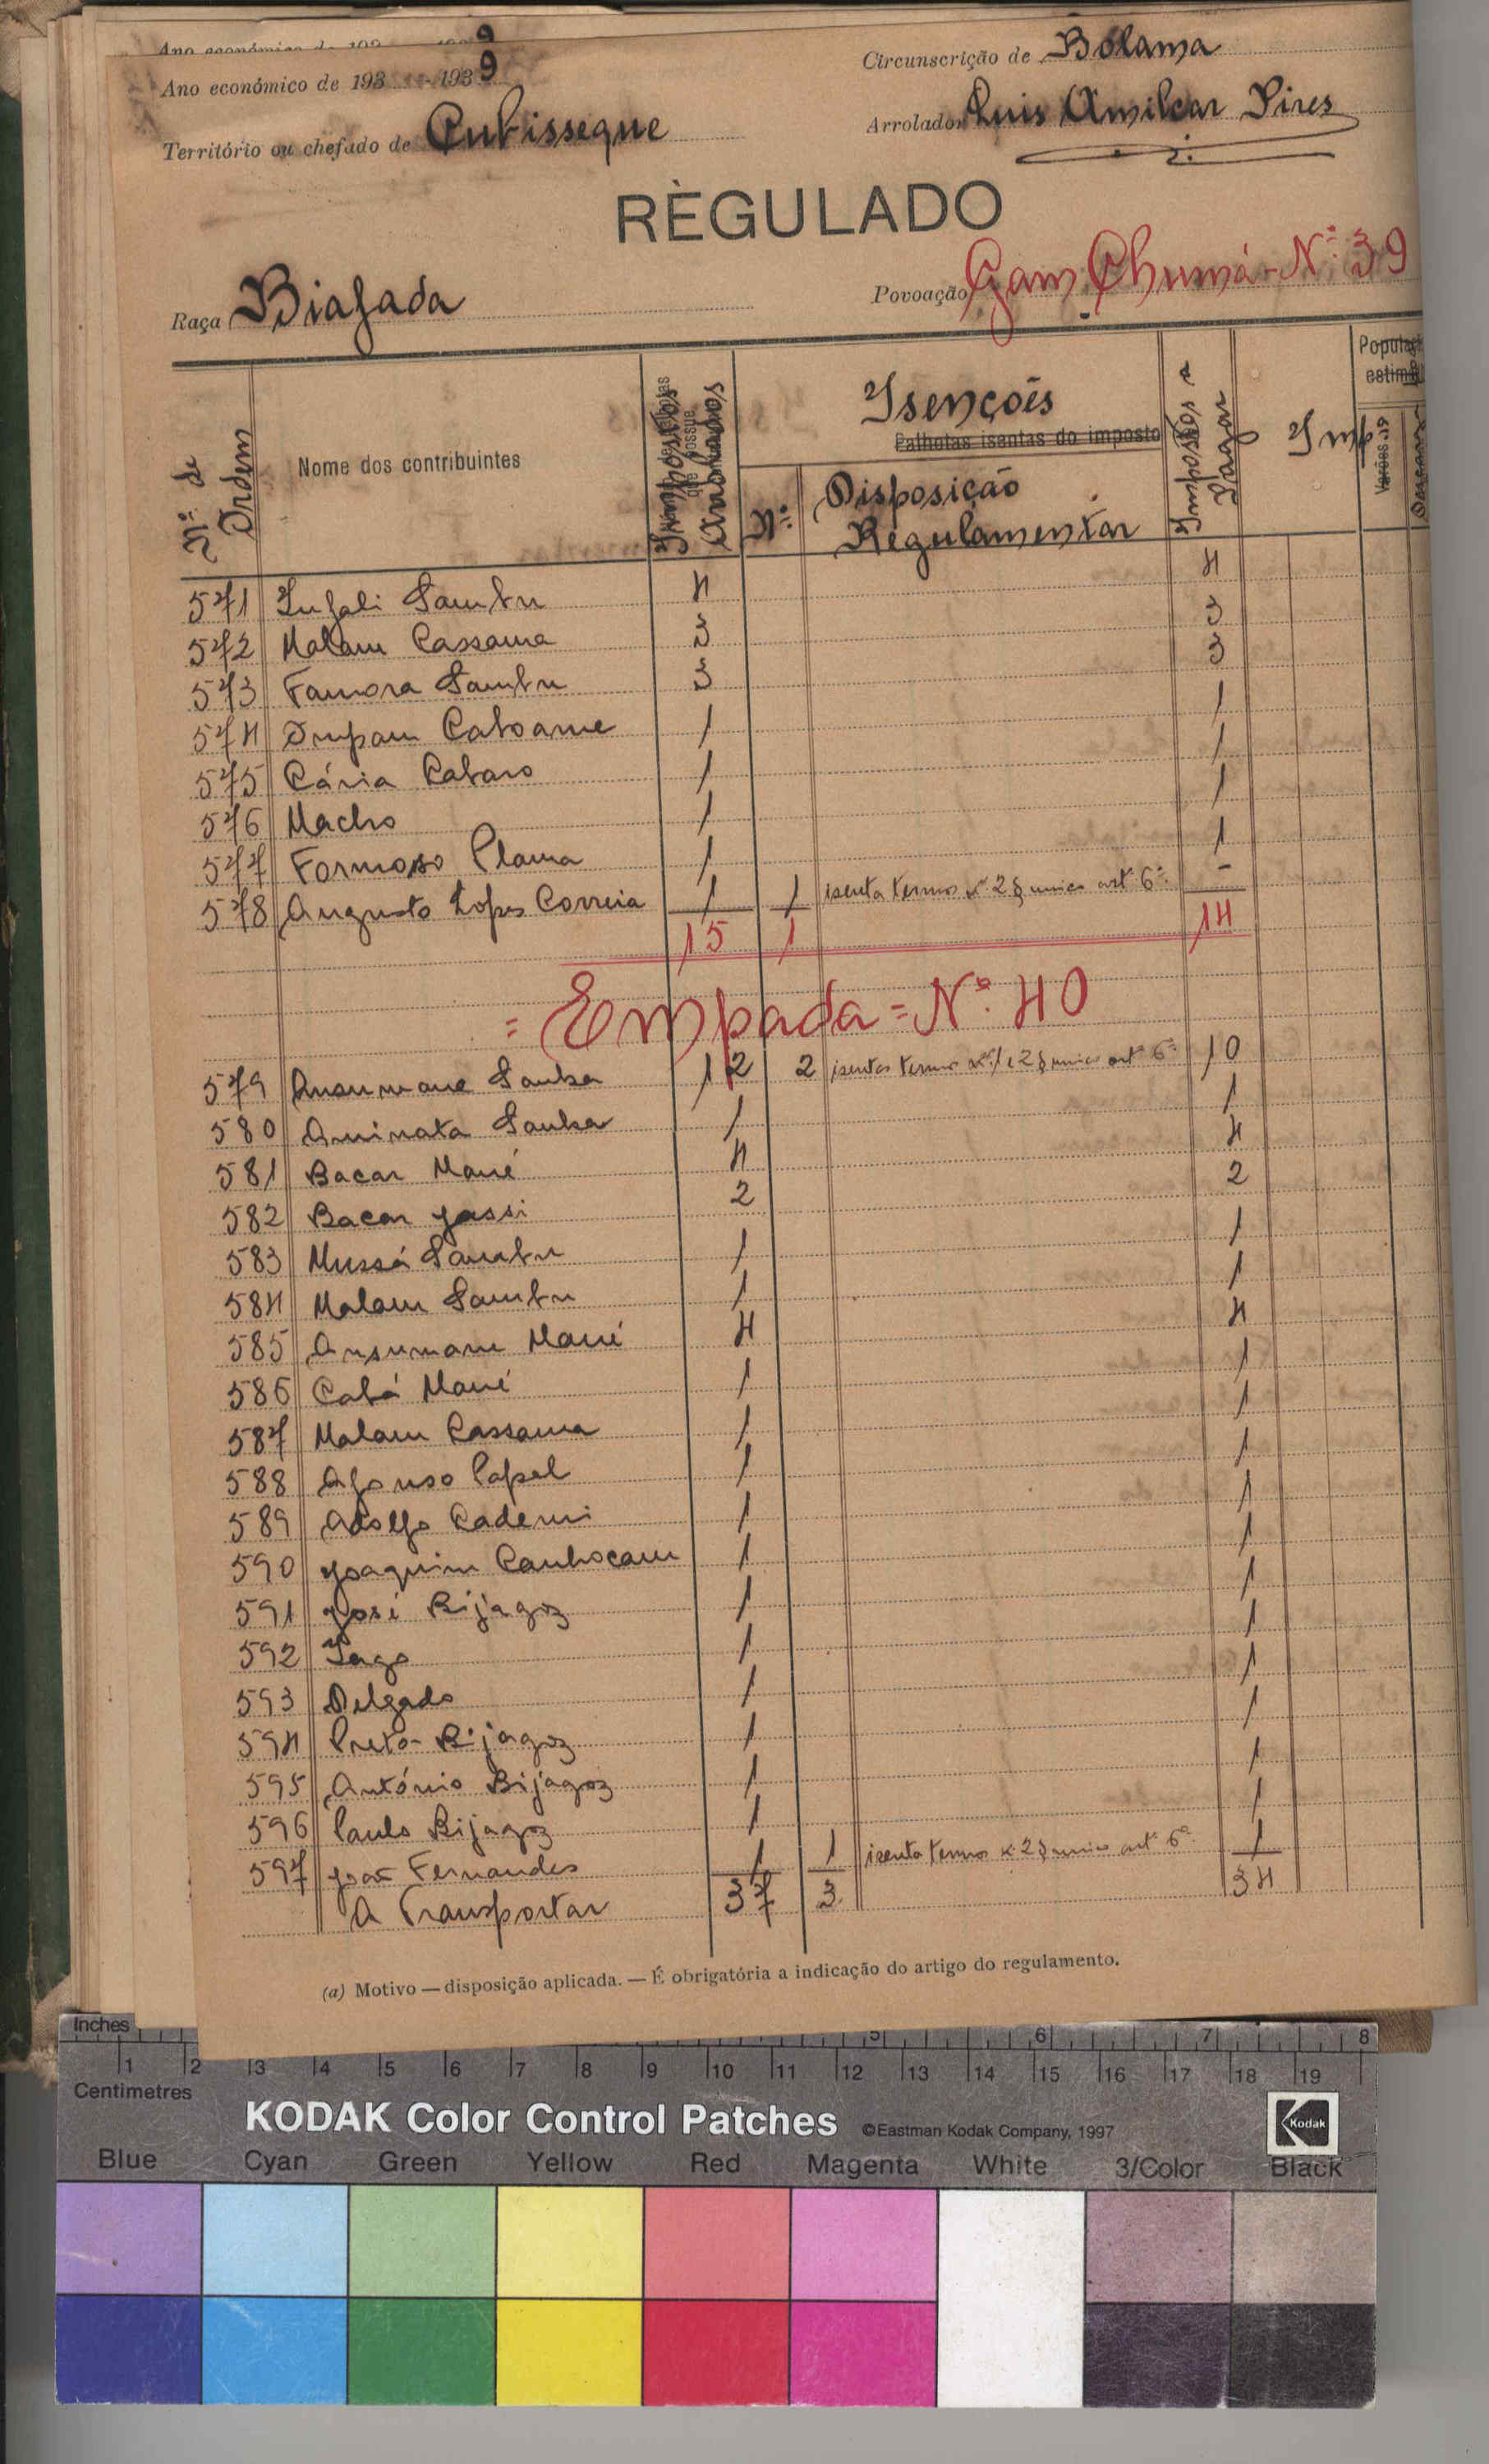 Ano económico de 193 - 1939
Circunscrição de Bolama
Território ou chefado de Cubisseque
Arrolador Luis Amilcar Pires
RÈGULADO
Raça Biafada
Povoação Gam Chumá - Nº 39
Nº de Ordem
Nome dos contribuintes
Impostos Arrolados
Isenções
Palhotas isentas do imposto
Nº
Disposição Regulamentar
Impostos a Pagar
Imp
571 Infali Sambu 4 4
572 Malam Cassama 3 3
573 Famora Sambu 3 3
574 Caboame 1 1
575 Cária Cabaro 1 1
576 Macho 1 1
577 Formoso Plama 1 1
578 Augusto Lopes Correia 1 1 isento termos nº 2 § unico artº 6º -
15 1 14
= Empada = Nº 40
579 Ansumane Sanha 12 2 isentos termos nº 1 e 2 § unico artº 6º 10
580 Aminata Sanha 1 1
581 Bacar Mané 4 4
582 Bacar Jassi 2 2
583 Mussá Sambu 1 1
584 Malam Sambu 1 1
585 Ansumane Mané 4 4
586 Cabá Mané 1 1
587 Malam Cassama 1 1
588 Afonso Papel 1 1
589 Adolfo Cademi 1 1
590 Joaquim Canhocam 1 1
591 José Bijagoz 1 1
592 Iago 1 1
593 Delgado 1 1
594 Preto - Bijagoz 1 1
595 António Bijagoz 1 1
596 Paulo Bijagoz 1 1
597 João Fernandes 1 1 isento termos nº 2 § unico artº 6º 1
A Transportar 37 3 34
(a) Motivo — disposição aplicada. — É obrigatória a indicação do artigo do regulamento.
Inches 5 6 7 8
1 2 3 4 5 6 7 8 9 10 11 12 13 14 15 16 17 18 19
Centimetres
KODAK Color Control Patches ©Eastman Kodak Company, 1997 Kodak
Blue Cyan Green Yellow Red Magenta White 3/Color Black